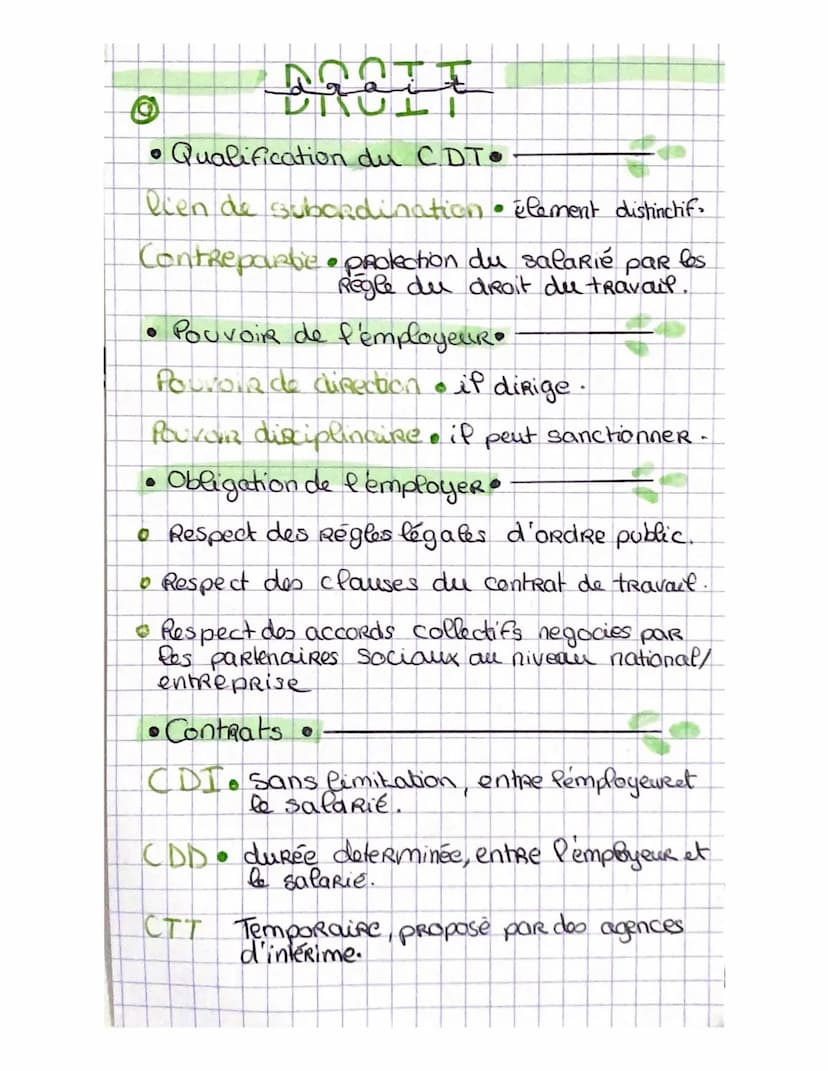 DROIT
droit
• Qualification du CDT •
lien de subordination • élement distinctif.
Contrepartie • protection du salarié par les
Régle du droit du travail.
• Pouvoir de l'employeur •
Pouvoir de direction • il dirige.
Pouvoir disciplinaire • il peut sanctionner.
• Obligation de l'employer •
• Respect des Régles légales d'ordre public.
• Respect des clauses du contrat de travail.
• Respect des accords collectifs negocies par
les partenaires sociaux au niveau national/
entreprise
• Contrats •
CDI • sans limitation, entre l'émployeur et
le salarié.
CDD • durée determinée, entre l'employeur et
le salarié.
CTT Temporaire, proposé par des agences
d'intérime.